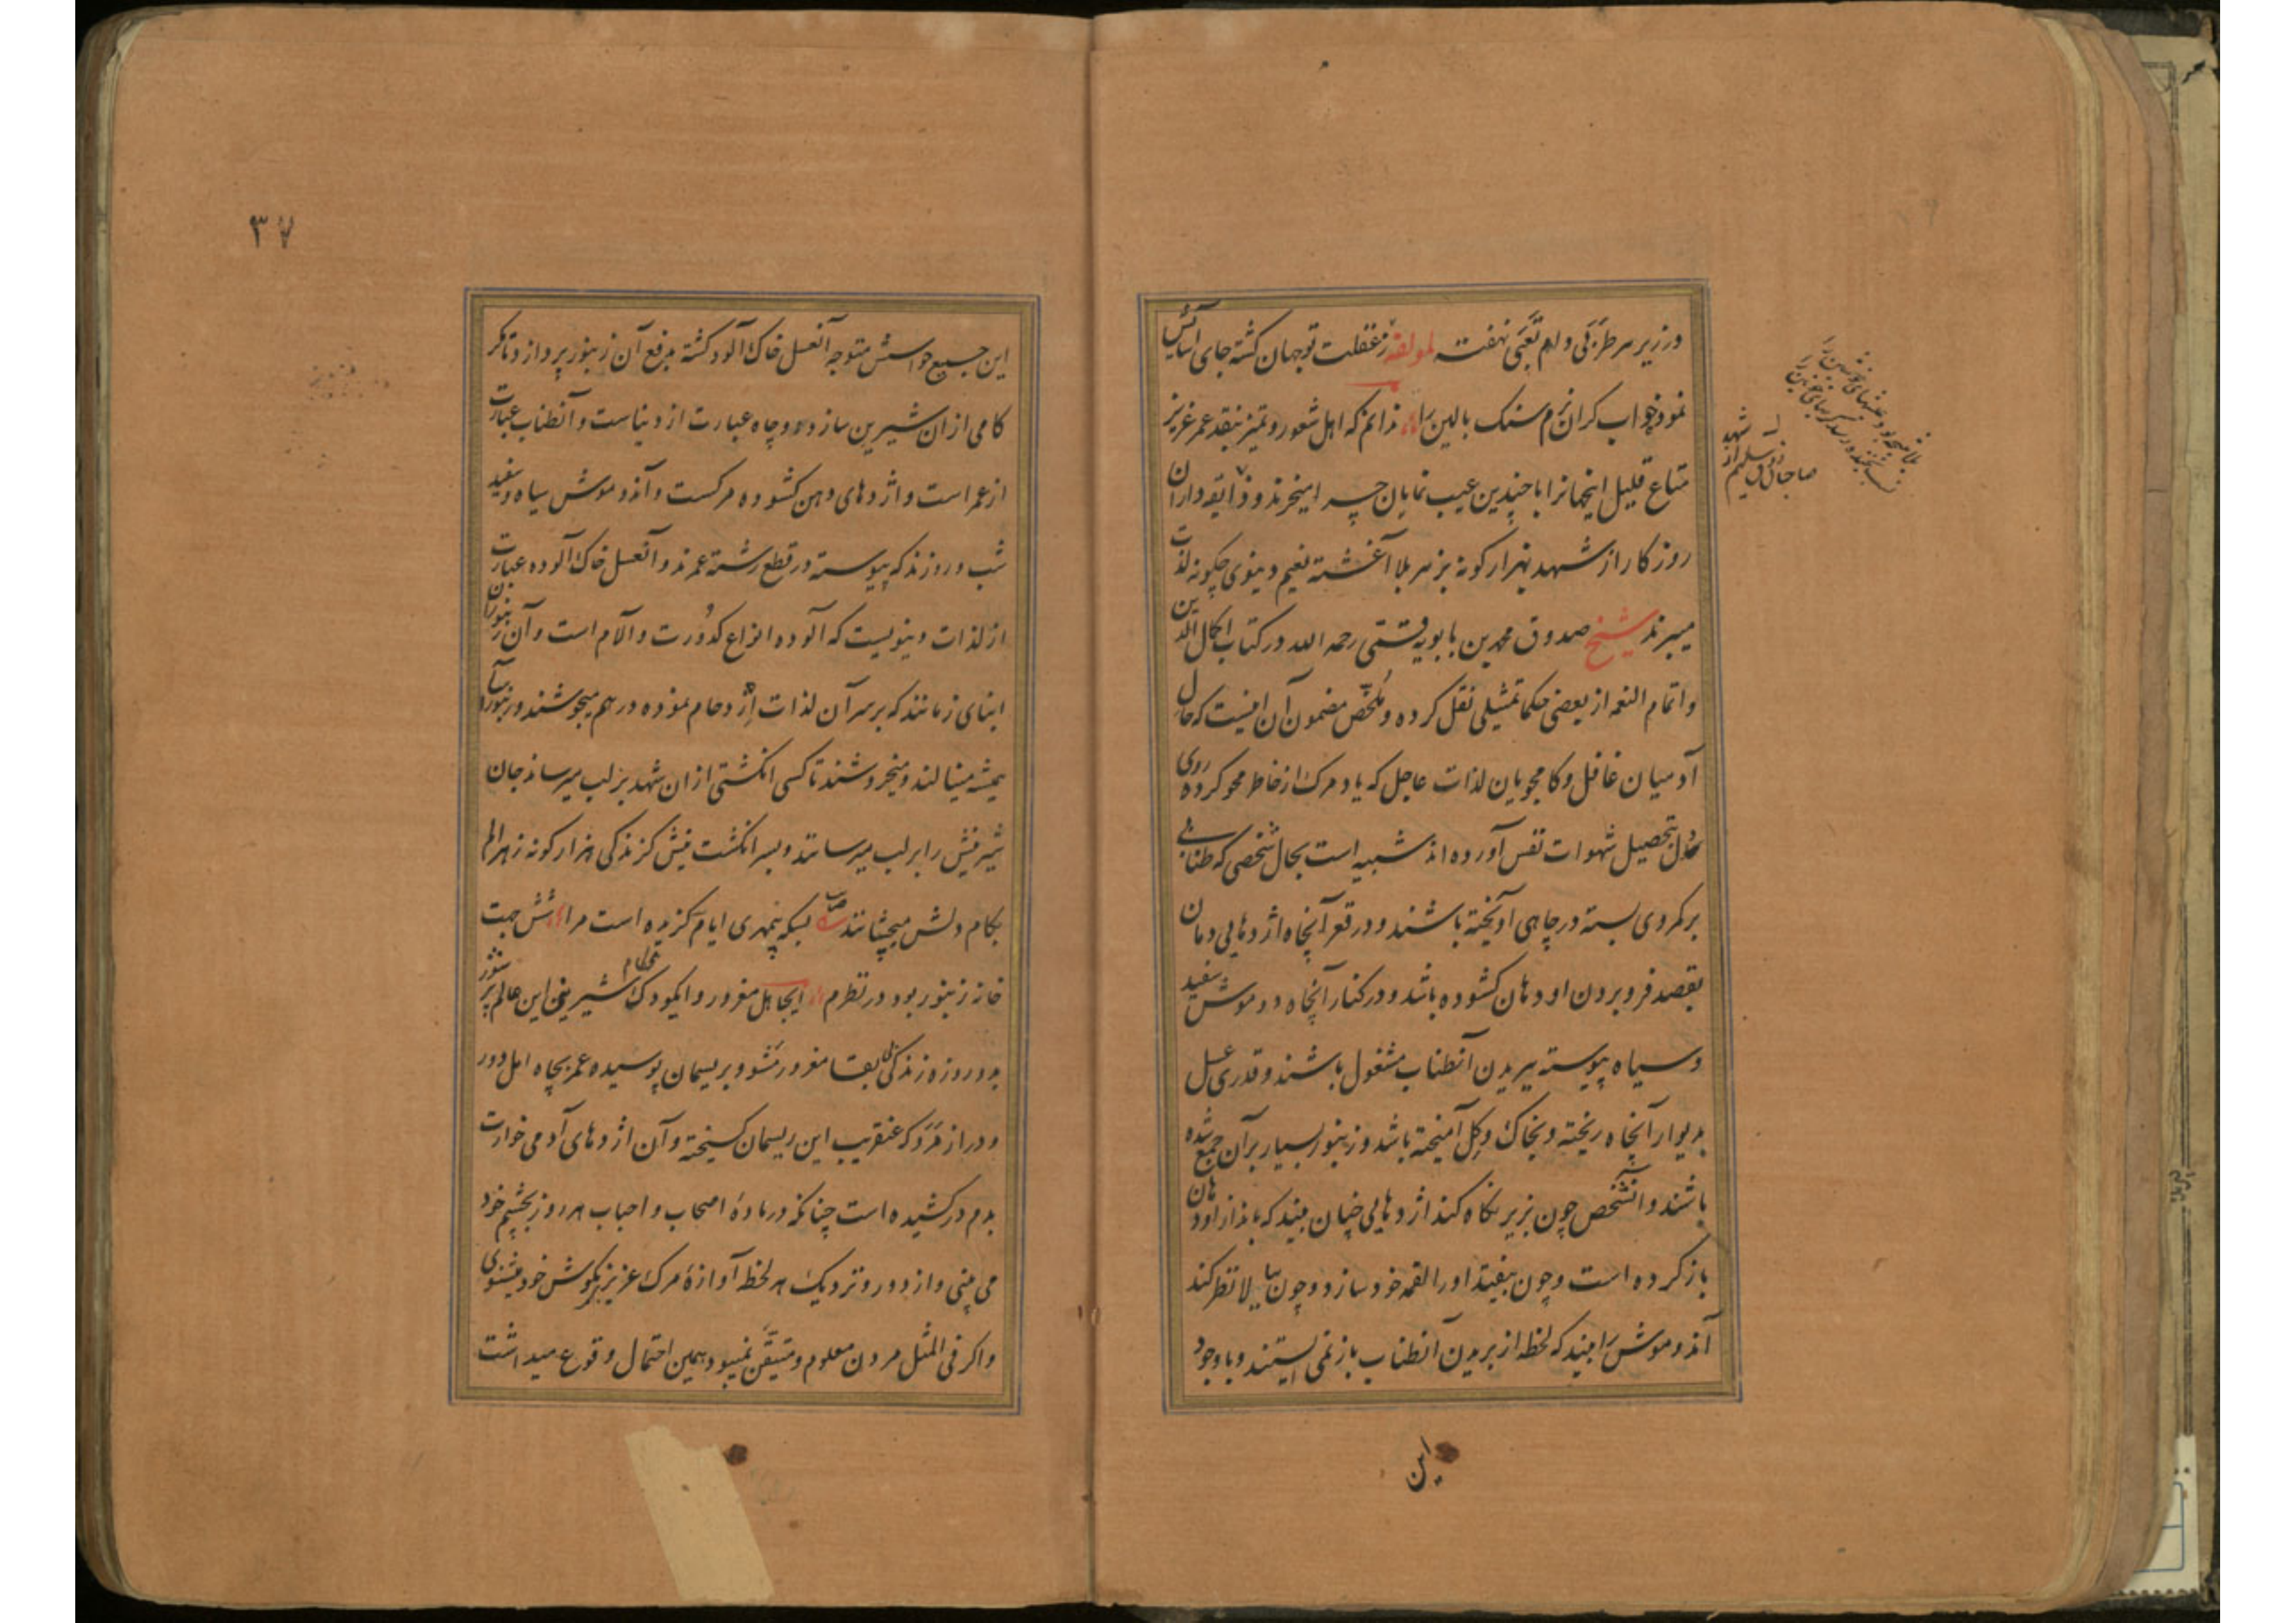 در زیر هر طرزکی دام تعبی نهفته لمولفه ز غفلت تو جهان کشته جای آسایش
نمود خواب کران نرم سنک بالین را ندانم که اهل شعور و تمیز بنقد عمر عزیز
متاع قلیل اینجهانرا با چندین عیب نمایان چه را میخرند و ذایقه داران
روزکار از شهد بهزار کونه بزهر بلا آغشته نعیم دنیوی چکونه لذت
میبرند شیخ صدوق محمد بن بابویه قمی رحمه الله در کتاب اکمال الدین
و اتمام النعمه از بعضی حکما تمثیلی نقل کرده و ملخص مضمون آن اینست که حال
آدمیان غافل و کامجویان لذات عاجل که یاد مرک از خاطر محو کرده روی
دل بتحصیل شهوات نفس آورده اند شبیه است بحال شخصی که طنابی
بر کمر وی بسته در چاهی آویخته باشند و در قعر آنچاه اژدهایی دمان
بقصد فرو بردن او دهان کشوده باشد و در کنار آنچاه دو موش سفید
و سیاه پیوسته ببریدن آنطناب مشغول باشند و قدری عسل
بدیوار آنچاه ریخته و بخاک و کل آمیخته باشد و زنبور بسیار بر آن جمع شده
باشند و آنشخص چون بزیر نکاه کند اژدهایی چنان بیند که باندازه او دهان
باز کرده است و چون بیفتد او را لقمه خود سازد و چون ببالا نظر کند
آندو موش را بیند که لحظه از بریدن آنطناب باز نمی ایستند و با وجود
این
صاحبان سلیم از شهد
۳۷
این جمیع حواسش متوجه آنعسل خاک آلود کشته بدفع آن زنبور پردازد تا مکر
کامی از آن شیرین سازد و چاه عبارت از دنیاست و آنطناب عبارت
از عمر است و اژدهای دهن کشوده مرکست و آندو موش سیاه و سفید
شب و روزند که پیوسته در قطع رشته عمرند و آنعسل خاک آلوده عبارت
از لذات دنیویست که آلوده انواع کدورت و آلام است و آن زنبوران
ابنای زمانند که بر سر آن لذات اژدحام نموده در هم میجوشند و زنبورآسا
همیشه مینالند و میخروشند تا کسی انکشتی از ان شهد بر لب میرساند جان
شیرینش را بر لب میرسانند و بسر انکشت نیش کزندکی هزار کونه زهر الم
بکام دلش میچشانند بسکه بیمهری ایام کزیده است مرا شش جهت
خانه زنبور بود در نظرم ایجاهل مغرور و ایکودک شیرینی این عالم پر شور
بدو روزه زندکی بی بقا مغرور مشو و بریسمان پوسیده عمر بچاه امل دور
و دراز مرو که عنقریب این ریسمان کسیخته و آن اژدهای آدمی خوارت
بدم در کشیده است چنانکه در ماده اصحاب و احباب هر روز بچشم خود
می بینی و از دور و نزدیک هر لحظه آوازه مرک عزیزی بکوش خود میشنوی
و اکر فی المثل مردن معلوم و متیقن نمیبود همین احتمال وقوع میداشت